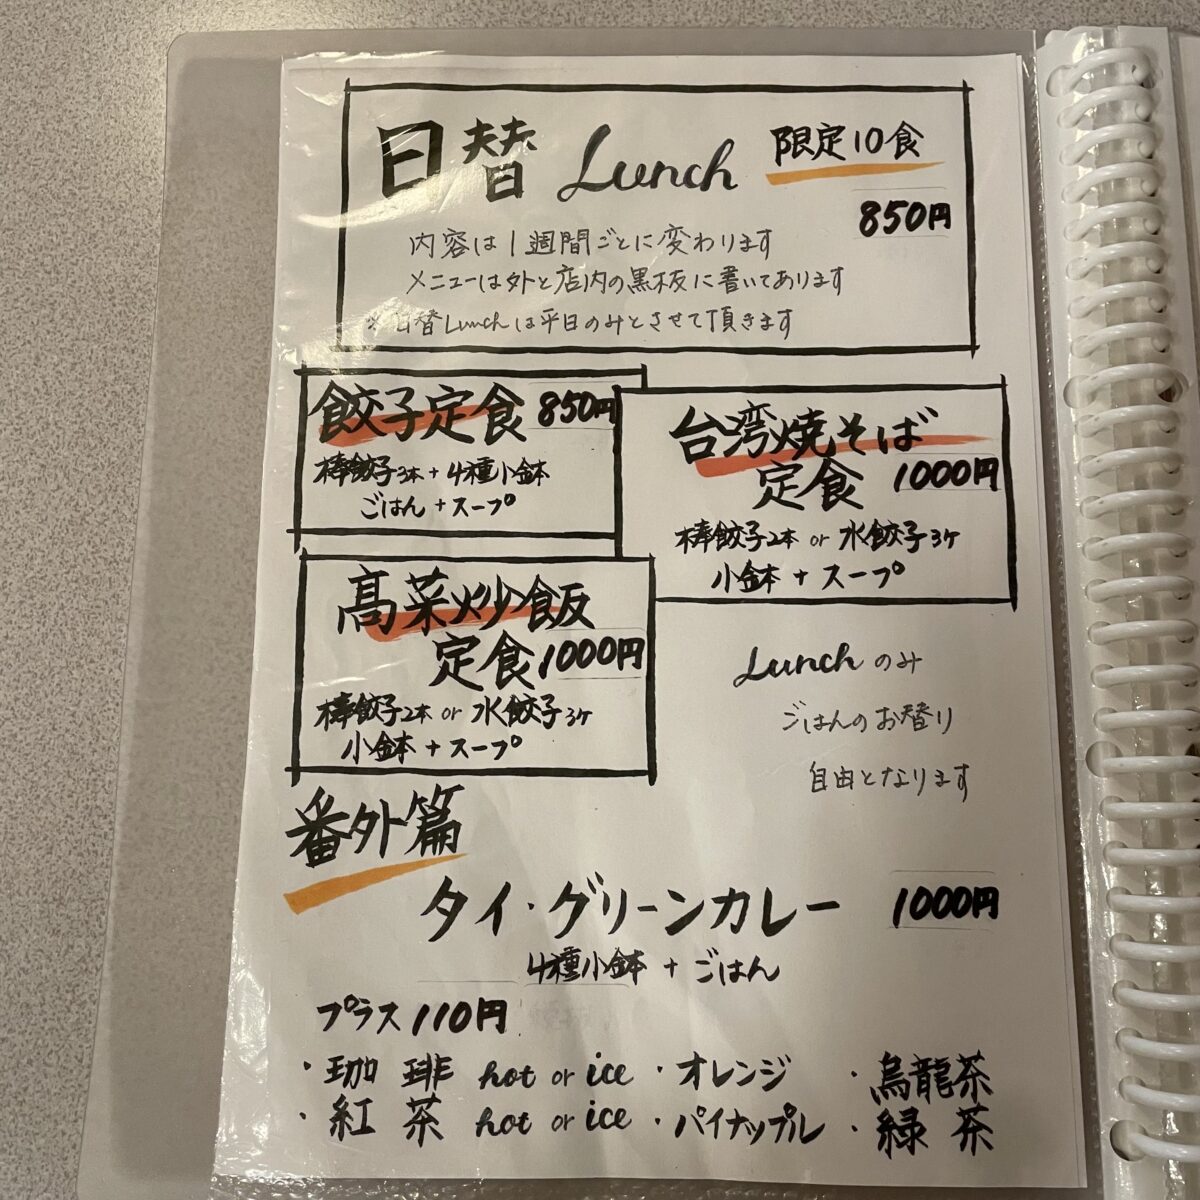 日替 Lunch 限定10食
850円
内容は1週間ごとに変わります
メニューは外と店内の黒板に書いてあります
※日替Lunchは平日のみとさせて頂きます
餃子定食 850円
棒餃子3本+4種小鉢
ごはん+スープ
台湾焼そば
定食 1000円
棒餃子2本 or 水餃子3ヶ
小鉢+スープ
高菜炒飯
定食 1000円
棒餃子2本 or 水餃子3ヶ
小鉢+スープ
Lunchのみ
ごはんのお替り
自由となります
番外篇
タイ・グリーンカレー 1000円
4種小鉢+ごはん
プラス110円
・珈琲 hot or ice ・オレンジ ・烏龍茶
・紅茶 hot or ice ・パイナップル ・緑茶